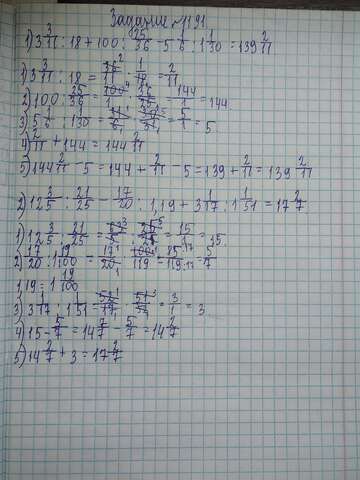 Задание №1191
1) 3 3/11 : 18 + 100 : 25/36 - 5 1/6 : 1 1/30 = 139 2/11
1) 3 3/11 : 18 = 36/11 · 1/18 = 2/11
2) 100 : 25/36 = 100/1 · 36/25 = 144/1 = 144
3) 5 1/6 : 1 1/30 = 31/6 · 30/31 = 5/1 = 5
4) 2/11 + 144 = 144 2/11
5) 144 2/11 - 5 = 144 + 2/11 - 5 = 139 + 2/11 = 139 2/11
2) 12 3/5 : 21/25 - 17/20 : 1,19 + 3 1/17 : 1 1/51 = 17 2/7
1) 12 3/5 : 21/25 = 63/5 · 25/21 = 15/1 = 15.
2) 17/20 : 1 19/100 = 17/20 · 100/119 = 85:17/119:17 = 5/7
1,19 = 1 19/100
3) 3 1/17 : 1 1/51 = 52/17 · 51/52 = 3/1 = 3
4) 15 - 5/7 = 14 7/7 - 5/7 = 14 2/7
5) 14 2/7 + 3 = 17 2/7